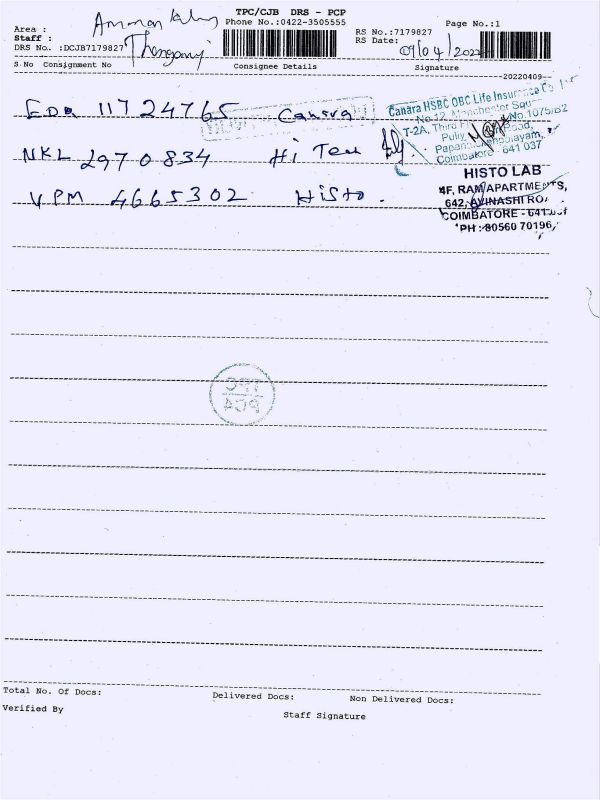 TPC/CJB DRS - PCP
Area : Amman
Phone No.:0422-3505555
Page No.:1
Staff :
RS No.:7179827
DRS No. :DCJB7179827
RS Date: 09/04/2022
S No Consignment No
Consignee Details
Signature
20220409
EDR 11724765 Canara
NKL 2970834 Hi Tech
VPM 4665302 Histo.
Canara HSBC OBC Life Insurance Co
No.12, Manchester Square
T-2A, Third No.1075/B2
Road,
Coimbatore - 641 037
HISTO LAB
4F, RAM APARTMENTS,
642, AVINASHI ROAD
COIMBATORE - 641037
PH : 80560 70196,
TPC
Total No. Of Docs:
Delivered Docs:
Non Delivered Docs:
Verified By
Staff Signature